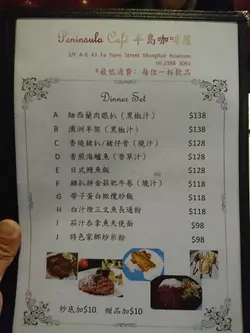 Peninsula Café 半島咖啡屋
1/F A-B 43 Fa Yuen Street Mongkok Kowloon
tel:2388 3061
*最低消費：每位一杯飲品
Dinner Set
A 紐西蘭肉眼扒（黑椒汁） $138
B 澳洲羊架（黑椒汁） $138
C 香燒豬扒/豬仔骨（燒汁） $128
D 香煎海鱸魚（香草汁） $128
E 日式鰻魚飯 $128
F 雞扒拼金菇肥牛卷（燒汁） $118
G 帶子蛋白燉欖炒飯 $118
H 白汁煙三文魚長通粉 $118
I 茄汁吞拿魚天使面 $98
J 特色家鄉炒米粉 $98
炒底加$10 甜品加$10